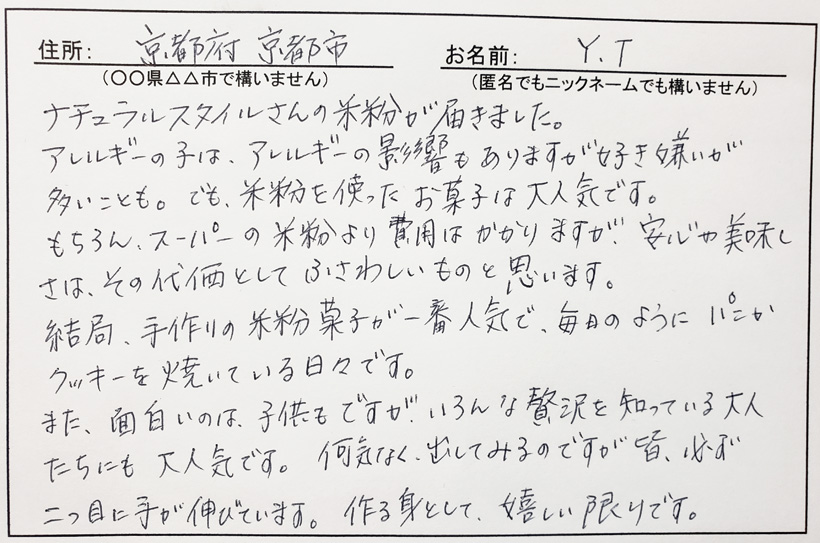 住所: 京都府 京都市 お名前: Y.T
(〇〇県△△市で構いません) (匿名でもニックネームでも構いません)
ナチュラルスタイルさんの米粉が届きました。
アレルギーの子は、アレルギーの影響もありますが好き嫌いが
多いことも。でも、米粉を使ったお菓子は大人気です。
もちろん、スーパーの米粉より費用はかかりますが、安心や美味し
さは、その代価としてふさわしいものと思います。
結局、手作りの米粉菓子が一番人気で、毎日のようにパンか
クッキーを焼いている日々です。
また、面白いのは、子供もですが、いろんな贅沢を知っている大人
たちにも大人気です。何気なく、出してみるのですが皆、必ず
二つ目に手が伸びています。作る身として、嬉しい限りです。